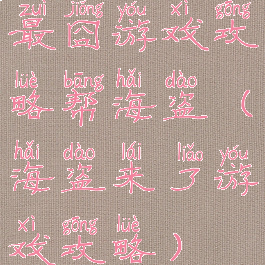 zuì jiǒng yóu xì gōng
最囧游戏攻
lüè bāng hǎi dào
略帮海盗（
hǎi dào lái liǎo yóu
海盗来了游
xì gōng lüè
戏攻略）